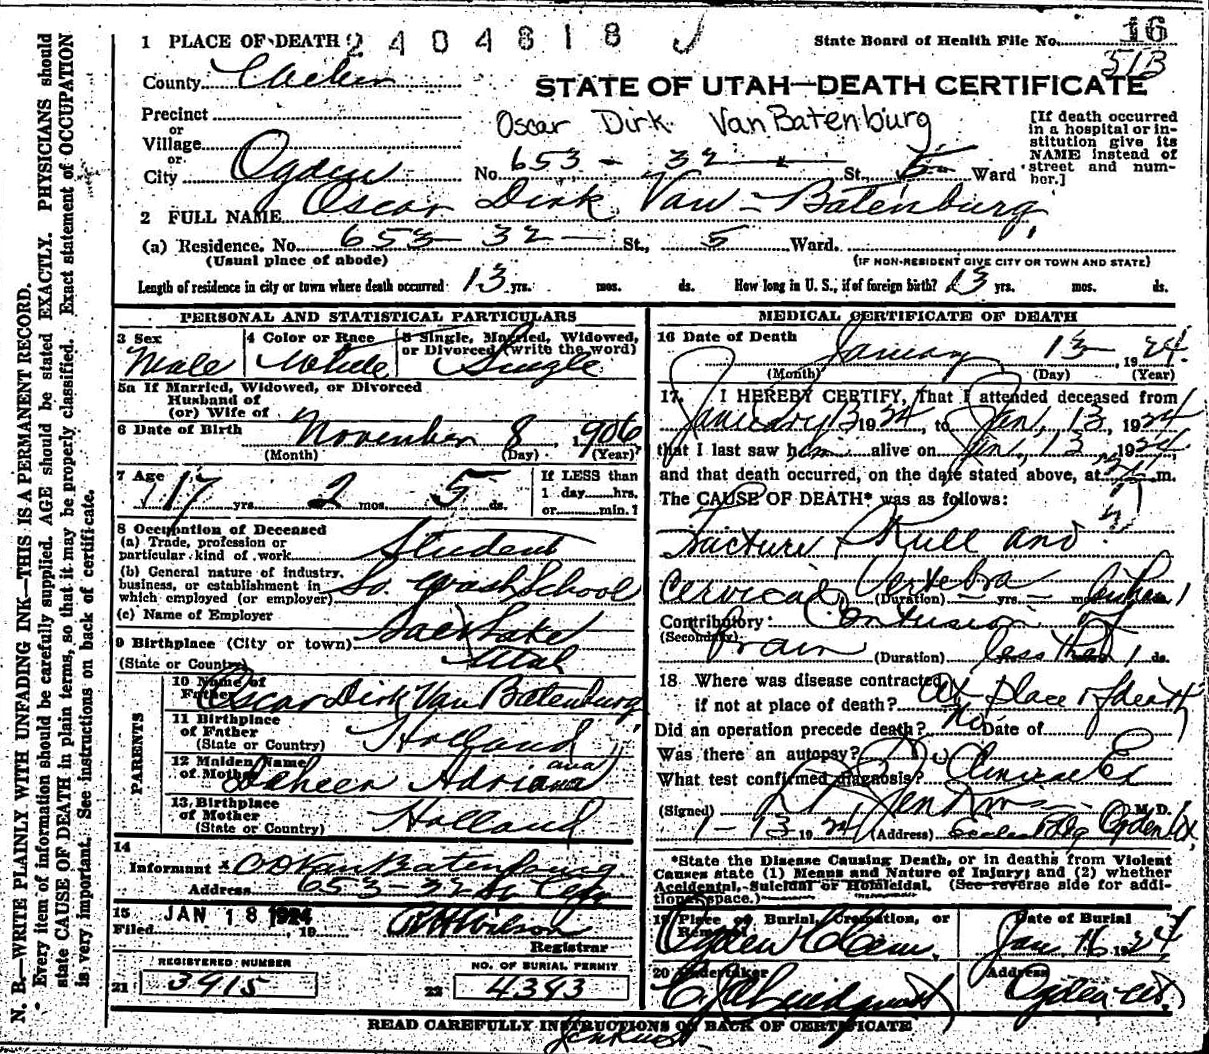 1 PLACE OF DEATH 2404818 State Board of Health File No. 16
513
County Weber STATE OF UTAH—DEATH CERTIFICATE
Precinct
or Oscar Dirk VanBatenburg
[If death occurred in a hospital or institution give its NAME instead of street and number.]
Village
or
City Ogden No. 653 - 32 St., 5 Ward
2 FULL NAME Oscar Dirk Van-Batenburg
(a) Residence. No. 653 32 St., 5 Ward.
(Usual place of abode) (IF NON-RESIDENT GIVE CITY OR TOWN AND STATE)
Length of residence in city or town where death occurred 13 yrs. mos. ds. How long in U. S., if of foreign birth? 13 yrs. mos. ds.
PERSONAL AND STATISTICAL PARTICULARS
3 Sex Male
4 Color or Race White
5 Single, Married, Widowed, or Divorced (write the word) Single
5a If Married, Widowed, or Divorced
Husband of
(or) Wife of
6 Date of Birth November 8, 1906
(Month) (Day) (Year)
7 Age 17 yrs. 2 mos. 5 ds.
If LESS than
1 day hrs.
or min.?
8 Occupation of Deceased
(a) Trade, profession or
particular kind of work Student
(b) General nature of industry,
business, or establishment in
which employed (or employer) So. Wash School
(c) Name of Employer
9 Birthplace (City or town) Salt Lake
(State or Country) Utah
PARENTS
10 Name of
Father Oscar Dirk Van Batenburg
11 Birthplace
of Father Holland
(State or Country)
12 Maiden Name
of Mother Adriana
ana
13 Birthplace
of Mother Holland
(State or Country)
14
Informant O D Van Batenburg
Address 653-32 St City
15 JAN 18 1924
Filed , 19 Wilson
Registrar
REGISTERED NUMBER
21 3915
NO. OF BURIAL PERMIT
22 4343
MEDICAL CERTIFICATE OF DEATH
16 Date of Death January 13, 1924
(Month) (Day) (Year)
17. I HEREBY CERTIFY, That I attended deceased from
January 13 1924, to Jan. 13, 1924
that I last saw him alive on Jan. 13, 1924,
and that death occurred, on the date stated above, at m.
The CAUSE OF DEATH* was as follows:
Fracture Skull and
Cervical Vertebra
(Duration) yrs. mos. 1
Contributory: Contusion of
(Secondary) Brain
(Duration) less than 1 ds.
18 Where was disease contracted
if not at place of death? At place of death
Did an operation precede death? No Date of
Was there an autopsy? No
What test confirmed diagnosis? Clinical Ex
(Signed) Jenkins M. D.
1-13 1924 (Address) Eccles Bldg Ogden
*State the Disease Causing Death, or in deaths from Violent
Causes state (1) Means and Nature of Injury; and (2) whether
Accidental, Suicidal or Homicidal. (See reverse side for additional space.)
19 Place of Burial, Cremation, or
Removal
Ogden Cem.
Date of Burial
Jan 16 1924
20 Undertaker
Lindquist
Address
Ogden
READ CAREFULLY INSTRUCTIONS ON BACK OF CERTIFICATE
Jenkins
N. B.—WRITE PLAINLY WITH UNFADING INK—THIS IS A PERMANENT RECORD.
Every item of information should be carefully supplied. AGE should be stated EXACTLY. PHYSICIANS should
state CAUSE OF DEATH in plain terms, so that it may be properly classified. Exact statement of OCCUPATION
is very important. See instructions on back of certificate.